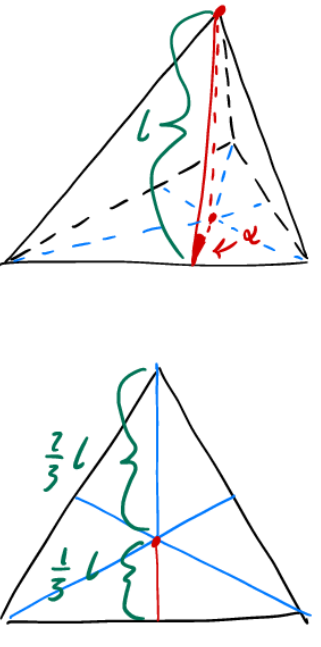 l
α
2/3 l
1/3 l